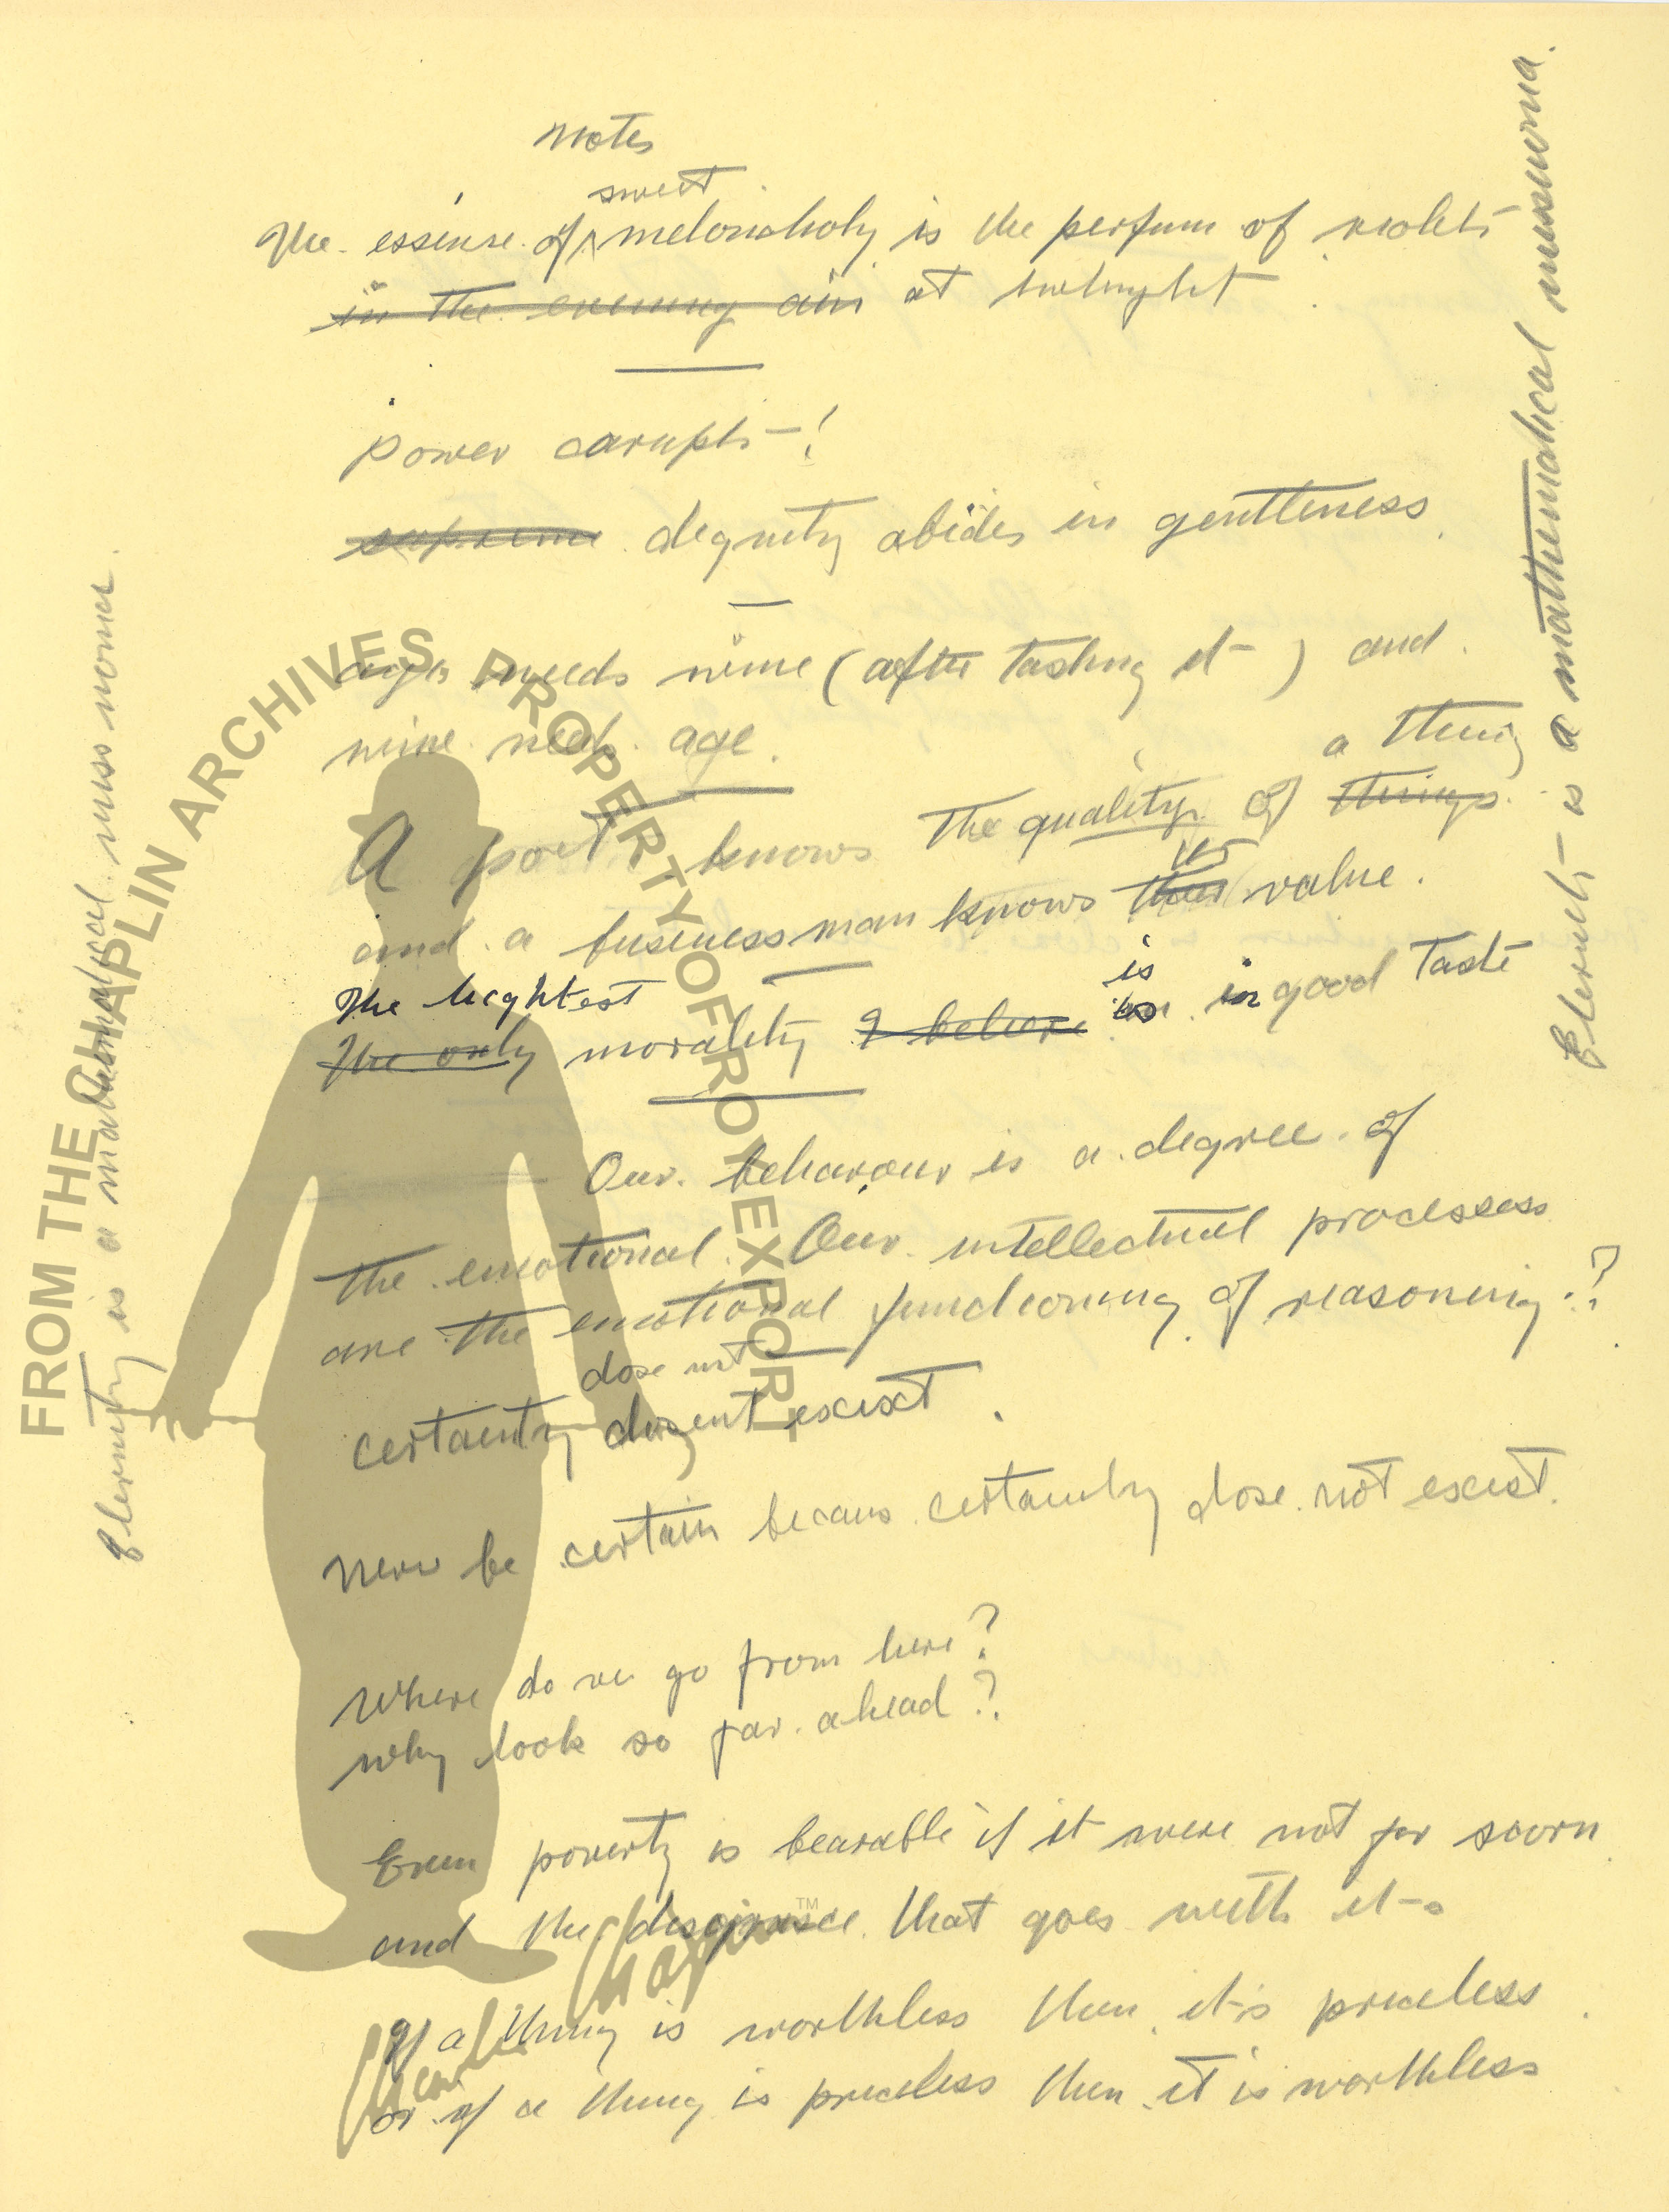 Notes
sweet
The essense of meloncholy is the perfum of violets
in the evening air at twilught
power carupts - !
supreme degnity abides in gentleness
age needs wine (after tasting it - ) and
wine needs age.
a thing
A poet knows The quality of things
its
and a business man knows their value.
The heightest is
The only morality I believe is in good taste
Our behavour is a degree of
the emotional. Our intellectual processess
are the emotional functioning of reasoning?
dose not
certainty dosent excist.
Never be certain becaus certainty dose not excist.
Where do we go from here?
why look so far ahead?
Even poverty is bearable if it were not for scorn
and the disgrace that goes with it
If a thing is worthless then it's priceless
or if a thing is priceless then it is worthless
Eternity is a mathematical
Eternity is a mathematical
FROM THE CHAPLIN ARCHIVES PROPERTY OF ROY EXPORT
Charlie Chaplin™